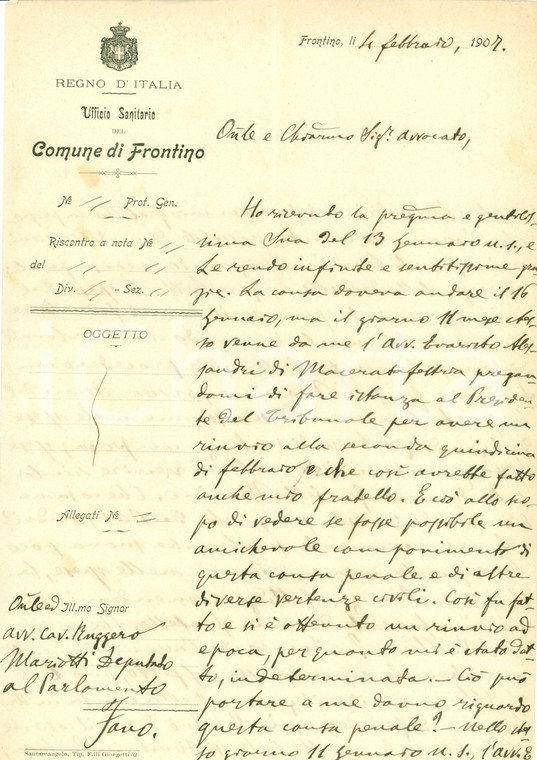 REGNO D'ITALIA
Ufficio Sanitario
DEL
Comune di Frontino
Frontino, li 4 febbraio, 1907.
Nº // Prot. Gen.
Riscontro a nota Nº //
del // //
Div. // - Sez. //
OGGETTO
Allegati Nº =
Onle e Chiarmo Sigr. Avvocato,
Ho ricevuto la pregma e gentilis-
sima Sua del 13 Gennaio u. s., e
Le rendo infinite e sentitissime gra-
zie. La causa doveva andare il 16
Gennaio, ma il giorno 11 mese stes-
so venne da me l'avv. Evaristo Ales-
sandri di Macerata feltria pregan-
domi di fare istanza al Presiden-
te del Tribunale per avere un
rinvio alla seconda quindicina
di febbraio e che così avrebbe fatto
anche mio fratello. E ciò allo sco-
po di vedere se fosse possibile un
amichevole componimento di
questa causa penale e di altre
diverse vertenze civili. Così fu fat-
to e si è ottenuto un rinvio ad
epoca, per quanto mi è stato det-
to, indeterminata. - Ciò può
portare a me danno riguardo
questa causa penale? - Nello stes-
so giorno 11 Gennaio u. s., l'avv. E
Onle ed Ill.mo Signor
Avv. Cav. Ruggero
Mariotti Deputato
al Parlamento
Fano.
Santarcangelo, Tip. F.lli Giorgetti